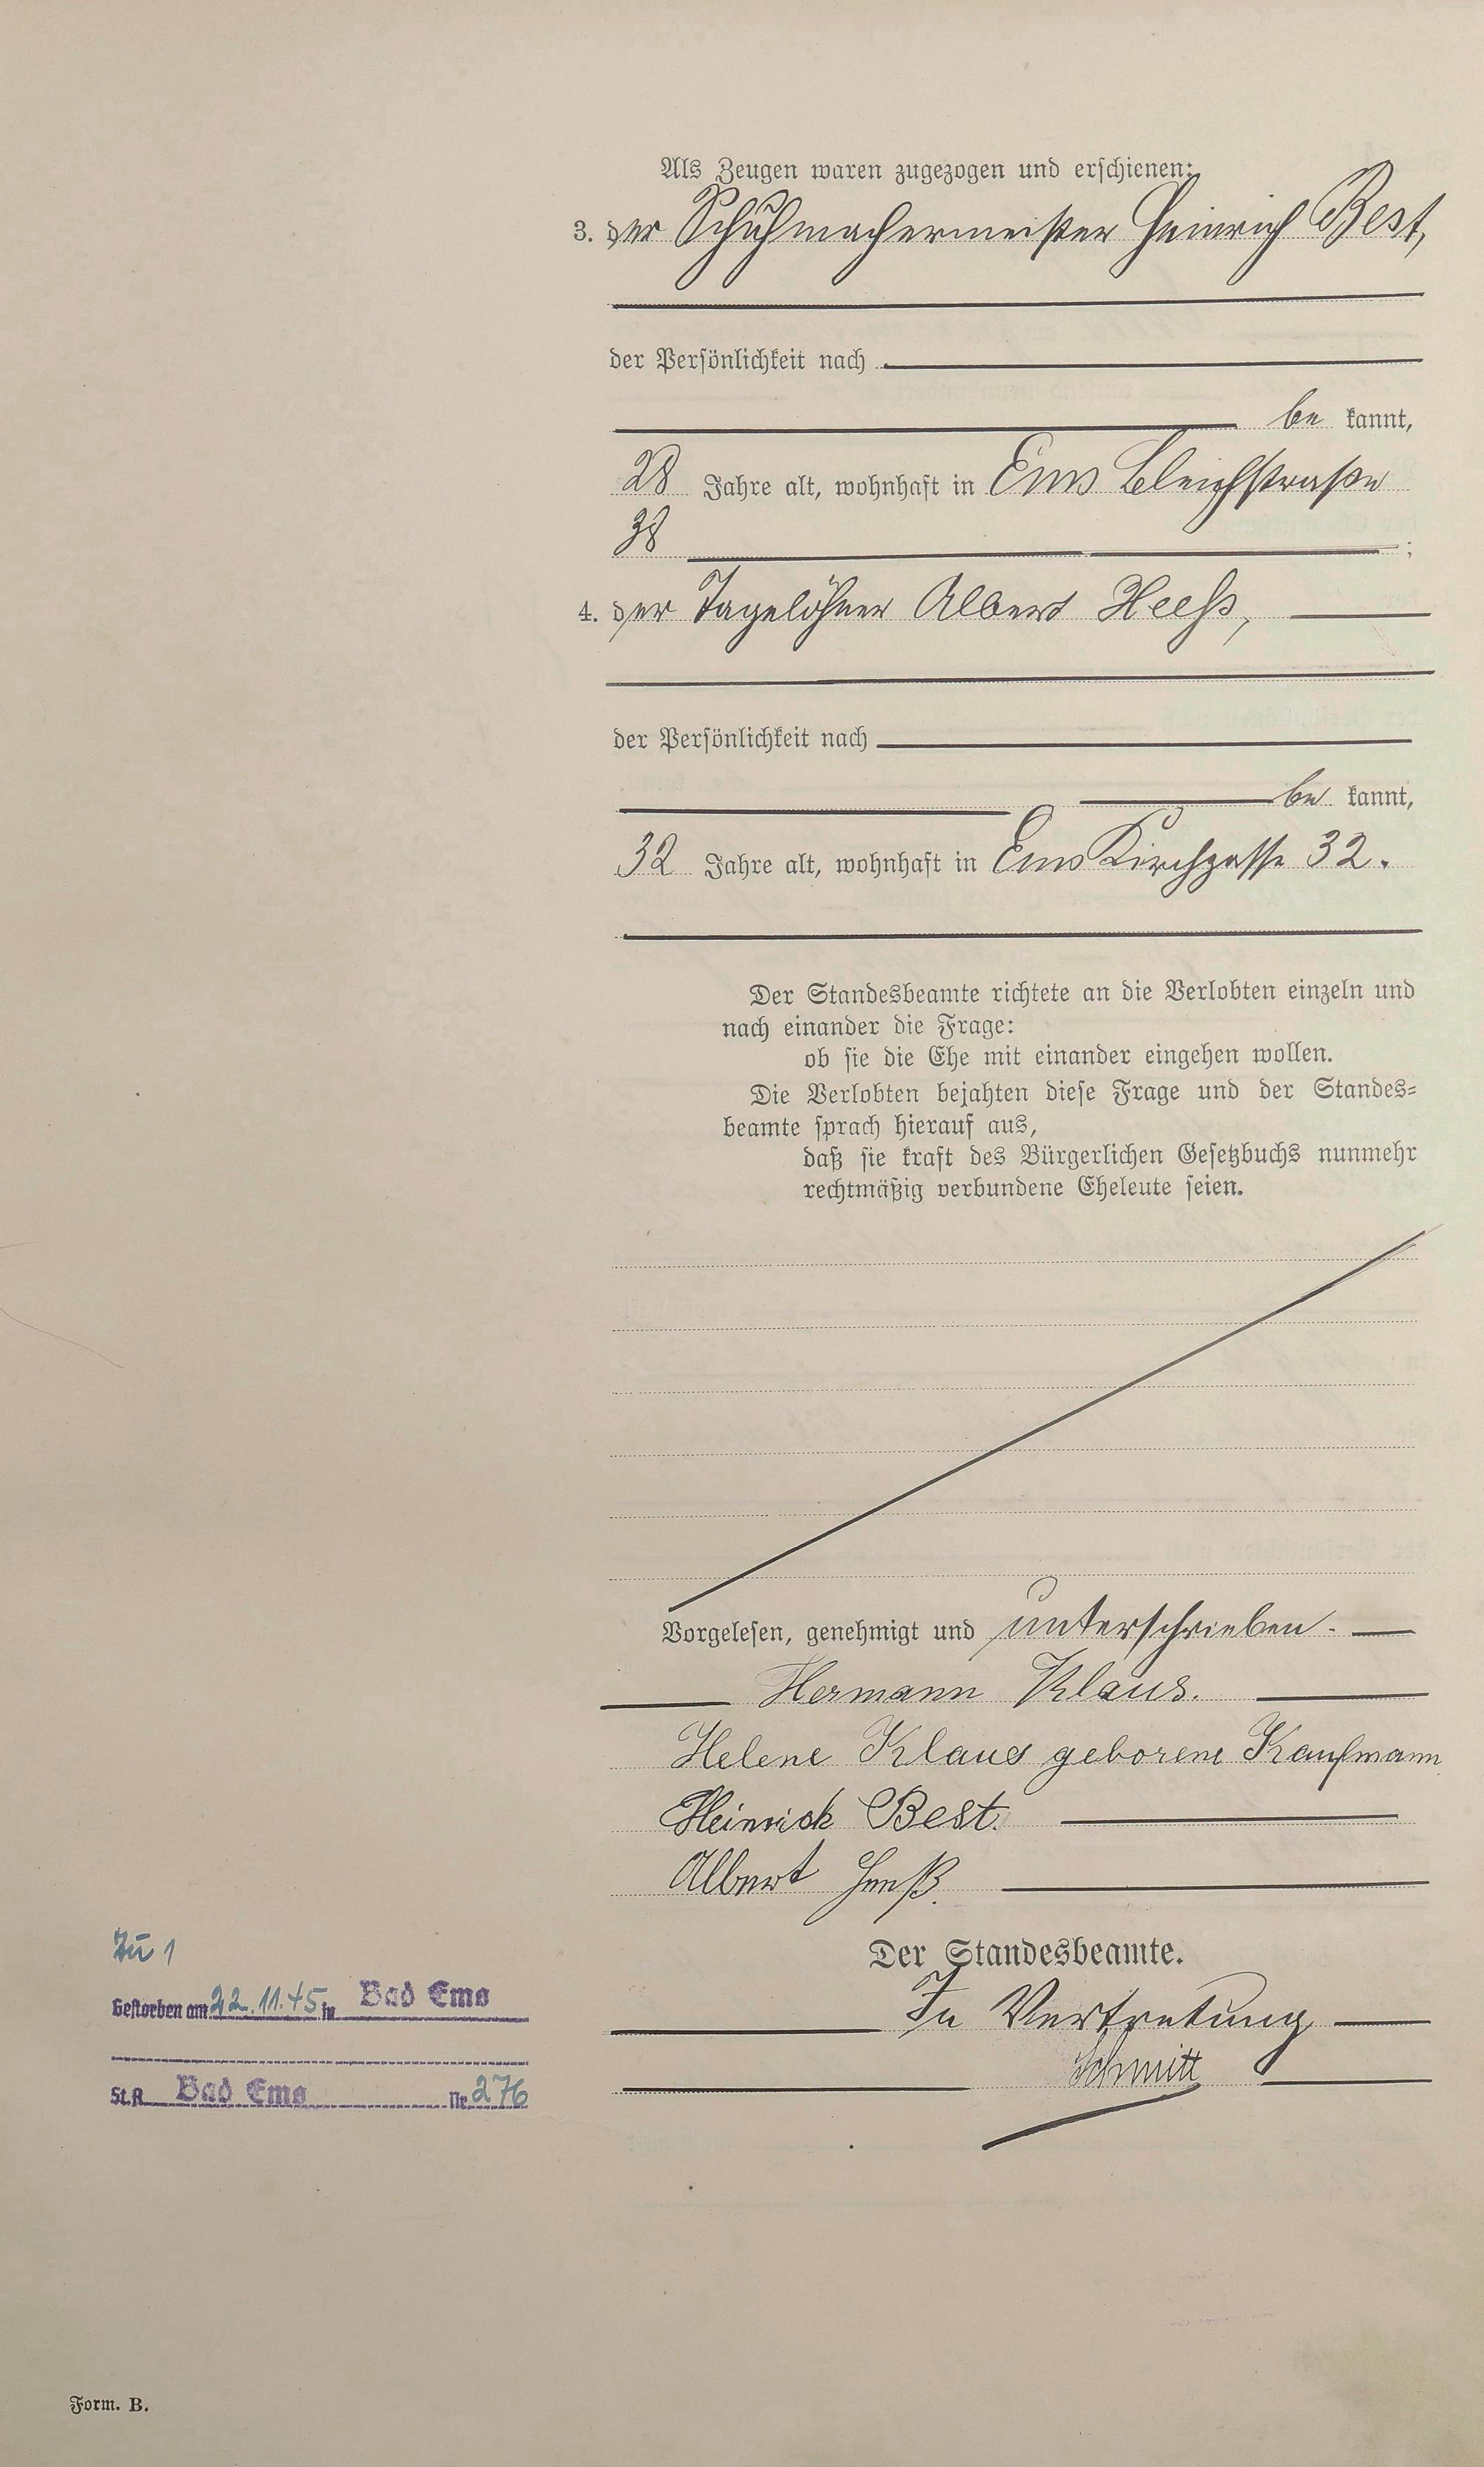 Als Zeugen waren zugezogen und erschienen:
3. der Schuhmachermeister Heinrich Best,
der Persönlichkeit nach
be kannt,
28 Jahre alt, wohnhaft in Ems Bleichstraße
38 ;
4. der Tagelöhner Albert Heeß,
der Persönlichkeit nach
be kannt,
32 Jahre alt, wohnhaft in Ems Kirchgasse 32.
Der Standesbeamte richtete an die Verlobten einzeln und
nach einander die Frage:
ob sie die Ehe mit einander eingehen wollen.
Die Verlobten bejahten diese Frage und der Standes=
beamte sprach hierauf aus,
daß sie kraft des Bürgerlichen Gesetzbuchs nunmehr
rechtmäßig verbundene Eheleute seien.
Vorgelesen, genehmigt und unterschrieben.
Hermann Klaus.
Helene Klaus geborene Kaufmann
Heinrich Best.
Albert Heeß.
Der Standesbeamte.
In Vertretung
Schmitt
Zu 1
Gestorben am 22.11.45 in Bad Ems
St.A. Bad Ems Nr. 276
Form. B.